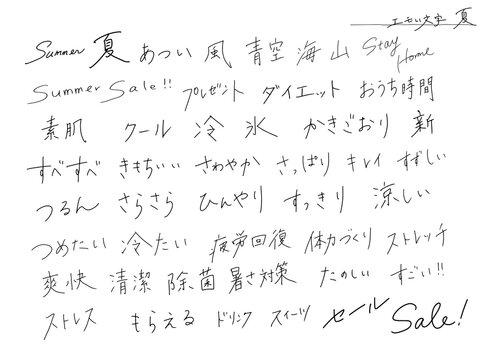 エモい文字 夏
Summer 夏 あつい 風 青空 海 山 Stay Home
Summer Sale!! プレゼント ダイエット おうち時間
素肌 クール 冷 氷 かきごおり 新
すべすべ きもちいい さわやか さっぱり キレイ すずしい
つるん さらさら ひんやり すっきり 涼しい
つめたい 冷たい 疲労回復 体力づくり ストレッチ
爽快 清潔 除菌 暑さ対策 たのしい すごい!!
ストレス もらえる ドリンク スイーツ セール Sale!